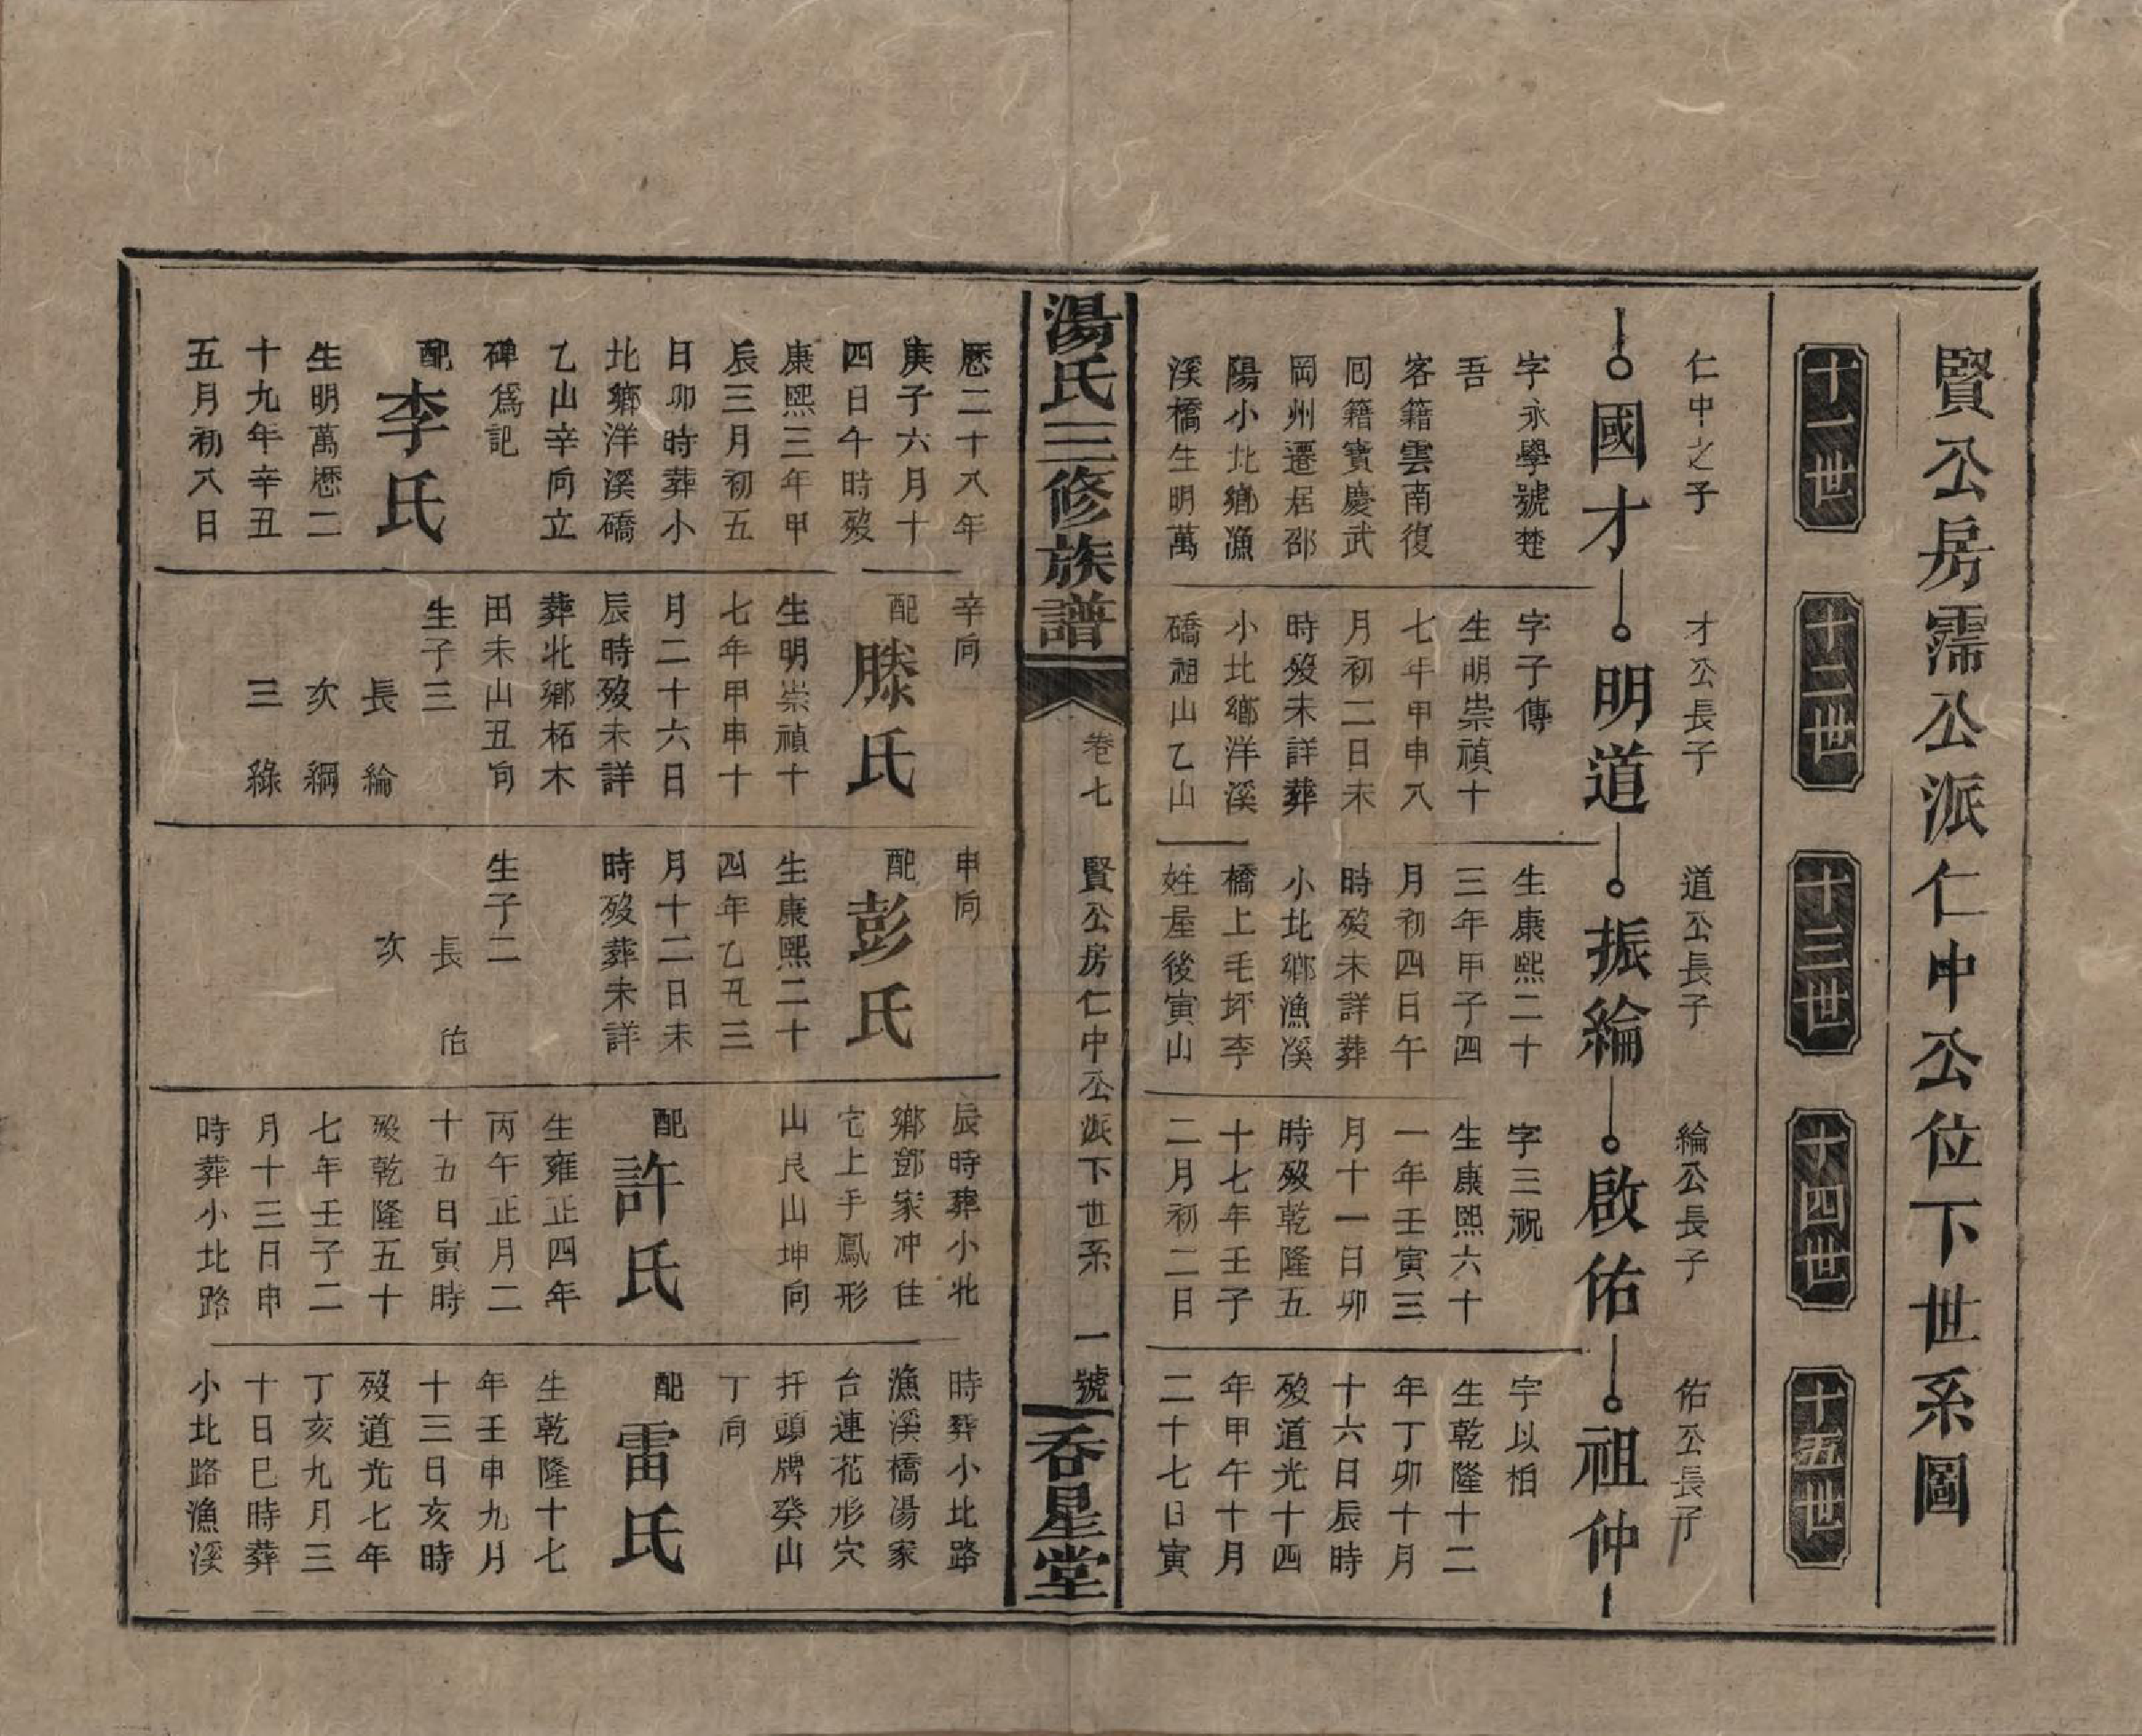 賢公房霈公派仁中公位下世系圖
十一世
十二世
十三世
十四世
十五世
仁中之子
國才
字永學號楚
吾
客籍雲南復
囘籍寶慶武
岡州遷居邵
陽小北鄉漁
溪橋生明萬
才公長子
明道
字子傳
生明崇禎十
七年甲申八
月初二日未
時歿未詳葬
小北鄉洋溪
礄祖山乙山
道公長子
振綸
生康熙二十
三年甲子四
月初四日午
時歿未詳葬
小北鄉漁溪
橋上毛坪李
姓屋後寅山
綸公長子
啟佑
字三祝
生康熙六十
一年壬寅三
月十一日卯
時歿乾隆五
十七年壬子
二月初二日
佑公長子
祖仲
字以柏
生乾隆十二
年丁卯十月
十六日辰時
歿道光十四
年甲午十月
二十七日寅
湯氏三修族譜
卷七
賢公房仁中公派下世系
一號
吞星堂
歷二十八年
庚子六月十
四日午時歿
康熙三年甲
辰三月初五
日卯時葬小
北鄉洋溪礄
乙山辛向立
碑爲記
配
李氏
生明萬歷二
十九年辛丑
五月初八日
辛向
配
滕氏
生明崇禎十
七年甲申十
月二十六日
辰時歿未詳
葬北鄉柘木
田未山丑向
生子三
長綸
次綱
三綠
申向
配
彭氏
生康熙二十
四年乙丑三
月十二日未
時歿葬未詳
生子二
長佑
次
辰時葬小北
鄉鄧家冲住
宅上手鳳形
山艮山坤向
配
許氏
生雍正四年
丙午正月二
十五日寅時
歿乾隆五十
七年壬子二
月十三日申
時葬小北路
時葬小北路
漁溪橋湯家
台連花形穴
扦頭牌癸山
丁向
配
雷氏
生乾隆十七
年壬申九月
十三日亥時
歿道光七年
丁亥九月三
十日巳時葬
小北路漁溪